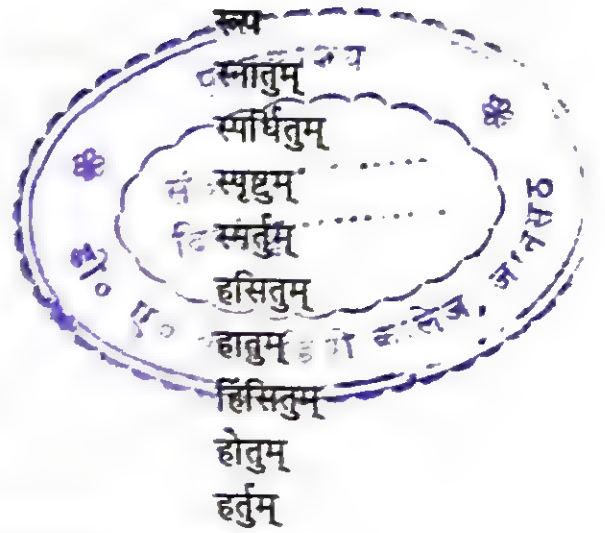 रूप
स्नातुम्
स्पर्धितुम्
स्पृष्टुम्
स्मर्तुम्
हसितुम्
हातुम्
हिंसितुम्
होतुम्
हर्तुम्
कालेज, जानसठ